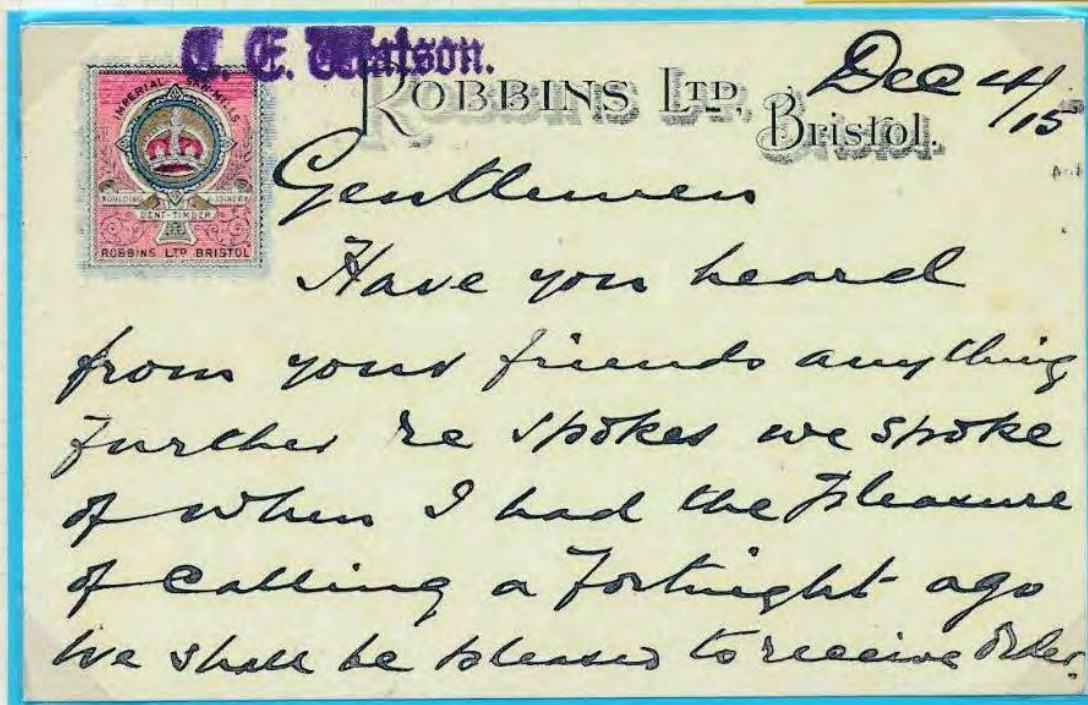 C. E. Watson.
ROBBINS LTD,
Bristol.
Dec 4/15
IMPERIAL SAW-MILLS
MOULDING JOINERY
BENT-TIMBER
ROBBINS LTD BRISTOL
Gentlemen
Have you heard
from your friends anything
further re spokes we spoke
of when I had the pleasure
of calling a fortnight ago
We shall be pleased to receive order